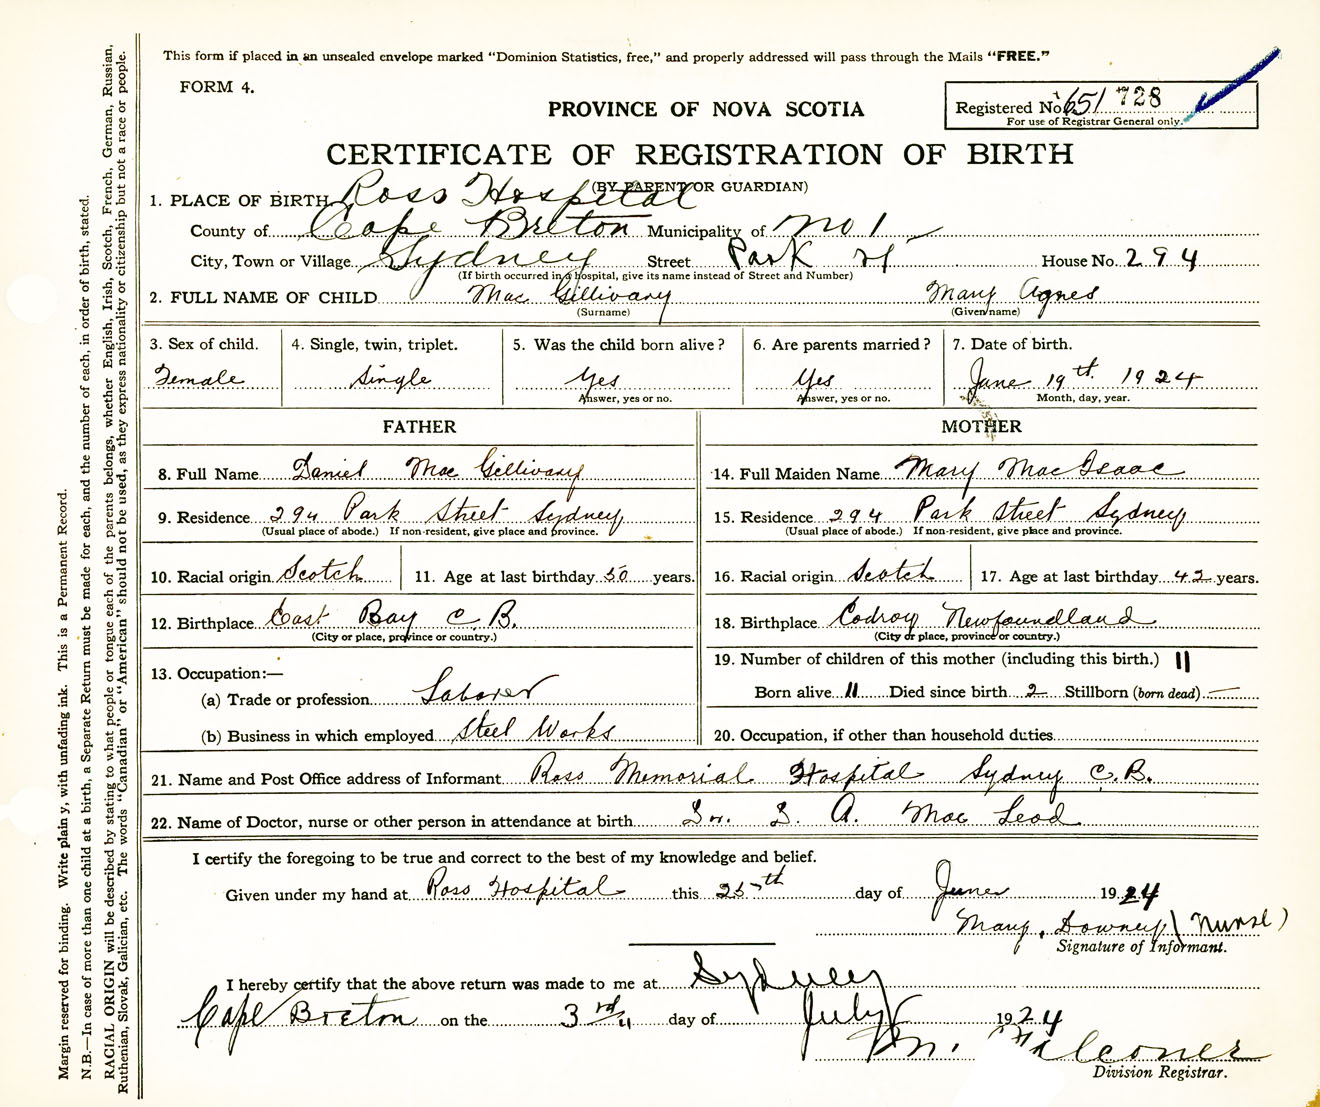 This form if placed in an unsealed envelope marked "Dominion Statistics, free," and properly addressed will pass through the Mails "FREE."
FORM 4.
Registered No. 651 728
For use of Registrar General only.
PROVINCE OF NOVA SCOTIA
CERTIFICATE OF REGISTRATION OF BIRTH
(BY PARENT OR GUARDIAN)
1. PLACE OF BIRTH Ross Hospital
County of Cape Breton Municipality of No 1
City, Town or Village Sydney Street Park St House No. 294
(If birth occurred in a hospital, give its name instead of Street and Number)
2. FULL NAME OF CHILD Mac Gillivary Mary Agnes
(Surname) (Given name)
3. Sex of child. 4. Single, twin, triplet. 5. Was the child born alive? 6. Are parents married? 7. Date of birth.
Female Single Yes Yes June 19th 1924
Answer, yes or no. Answer, yes or no. Month, day, year.
FATHER MOTHER
8. Full Name Daniel Mac Gillivary 14. Full Maiden Name Mary Mac Isaac
9. Residence 294 Park Street Sydney 15. Residence 294 Park Street Sydney
(Usual place of abode.) If non-resident, give place and province. (Usual place of abode.) If non-resident, give place and province.
10. Racial origin Scotch 11. Age at last birthday 50 years. 16. Racial origin Scotch 17. Age at last birthday 42 years.
12. Birthplace East Bay C. B. 18. Birthplace Codroy Newfoundland
(City or place, province or country.) (City or place, province or country.)
13. Occupation:— 19. Number of children of this mother (including this birth.) 11
(a) Trade or profession Laborer Born alive 11 Died since birth 2 Stillborn (born dead) —
(b) Business in which employed Steel Works 20. Occupation, if other than household duties
21. Name and Post Office address of Informant Ross Memorial Hospital Sydney C. B.
22. Name of Doctor, nurse or other person in attendance at birth Dr. A. Mac Leod
I certify the foregoing to be true and correct to the best of my knowledge and belief.
Given under my hand at Ross Hospital this 25th day of June 1924
Mary Downey (Nurse)
Signature of Informant.
I hereby certify that the above return was made to me at Sydney
Cape Breton on the 3rd day of July 1924
Falconer
Division Registrar.
Margin reserved for binding. Write plainly, with unfading ink. This is a Permanent Record.
N.B.—In case of more than one child at a birth, a Separate Return must be made for each, and the number of each, in order of birth, stated.
RACIAL ORIGIN will be described by stating to what people or tongue each of the parents belongs, whether English, Irish, Scotch, French, German, Russian,
Ruthenian, Slovak, Galician, etc. The words "Canadian" or "American" should not be used, as they express nationality or citizenship but not a race or people.